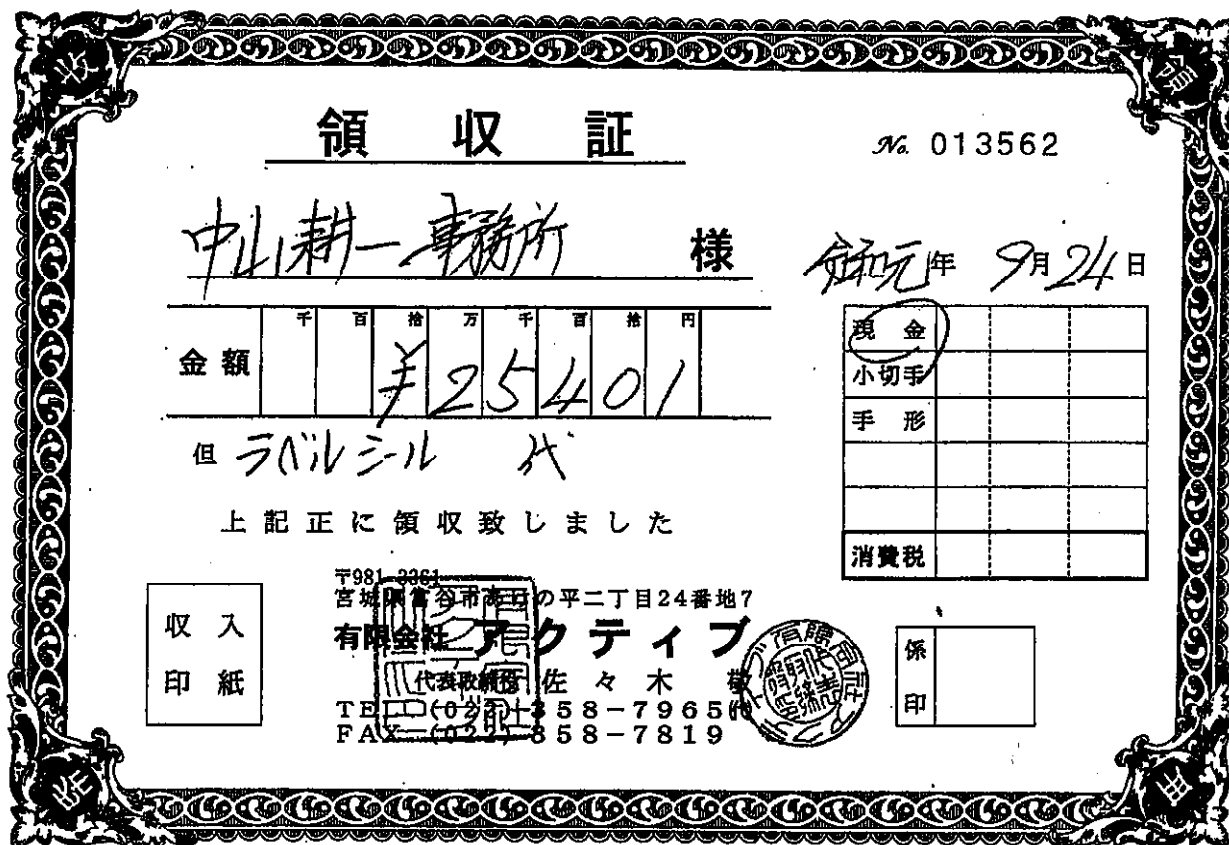 領収証
No. 013562
中山耕一事務所 様
令和元年 9月24日
千 百 拾 万 千 百 拾 円
金額 ¥25401
現金
小切手
手形
消費税
但 ラベルシール 代
上記正に領収致しました
収入
印紙
〒981-3361
宮城県富谷市あけの平二丁目24番地7
有限会社 アクティブ
代表取締役 佐々木 敬
TEL (022) 358-7965㈹
FAX (022) 358-7819
係
印